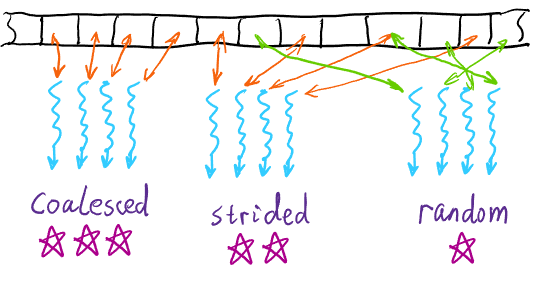 Coalesced
strided
random